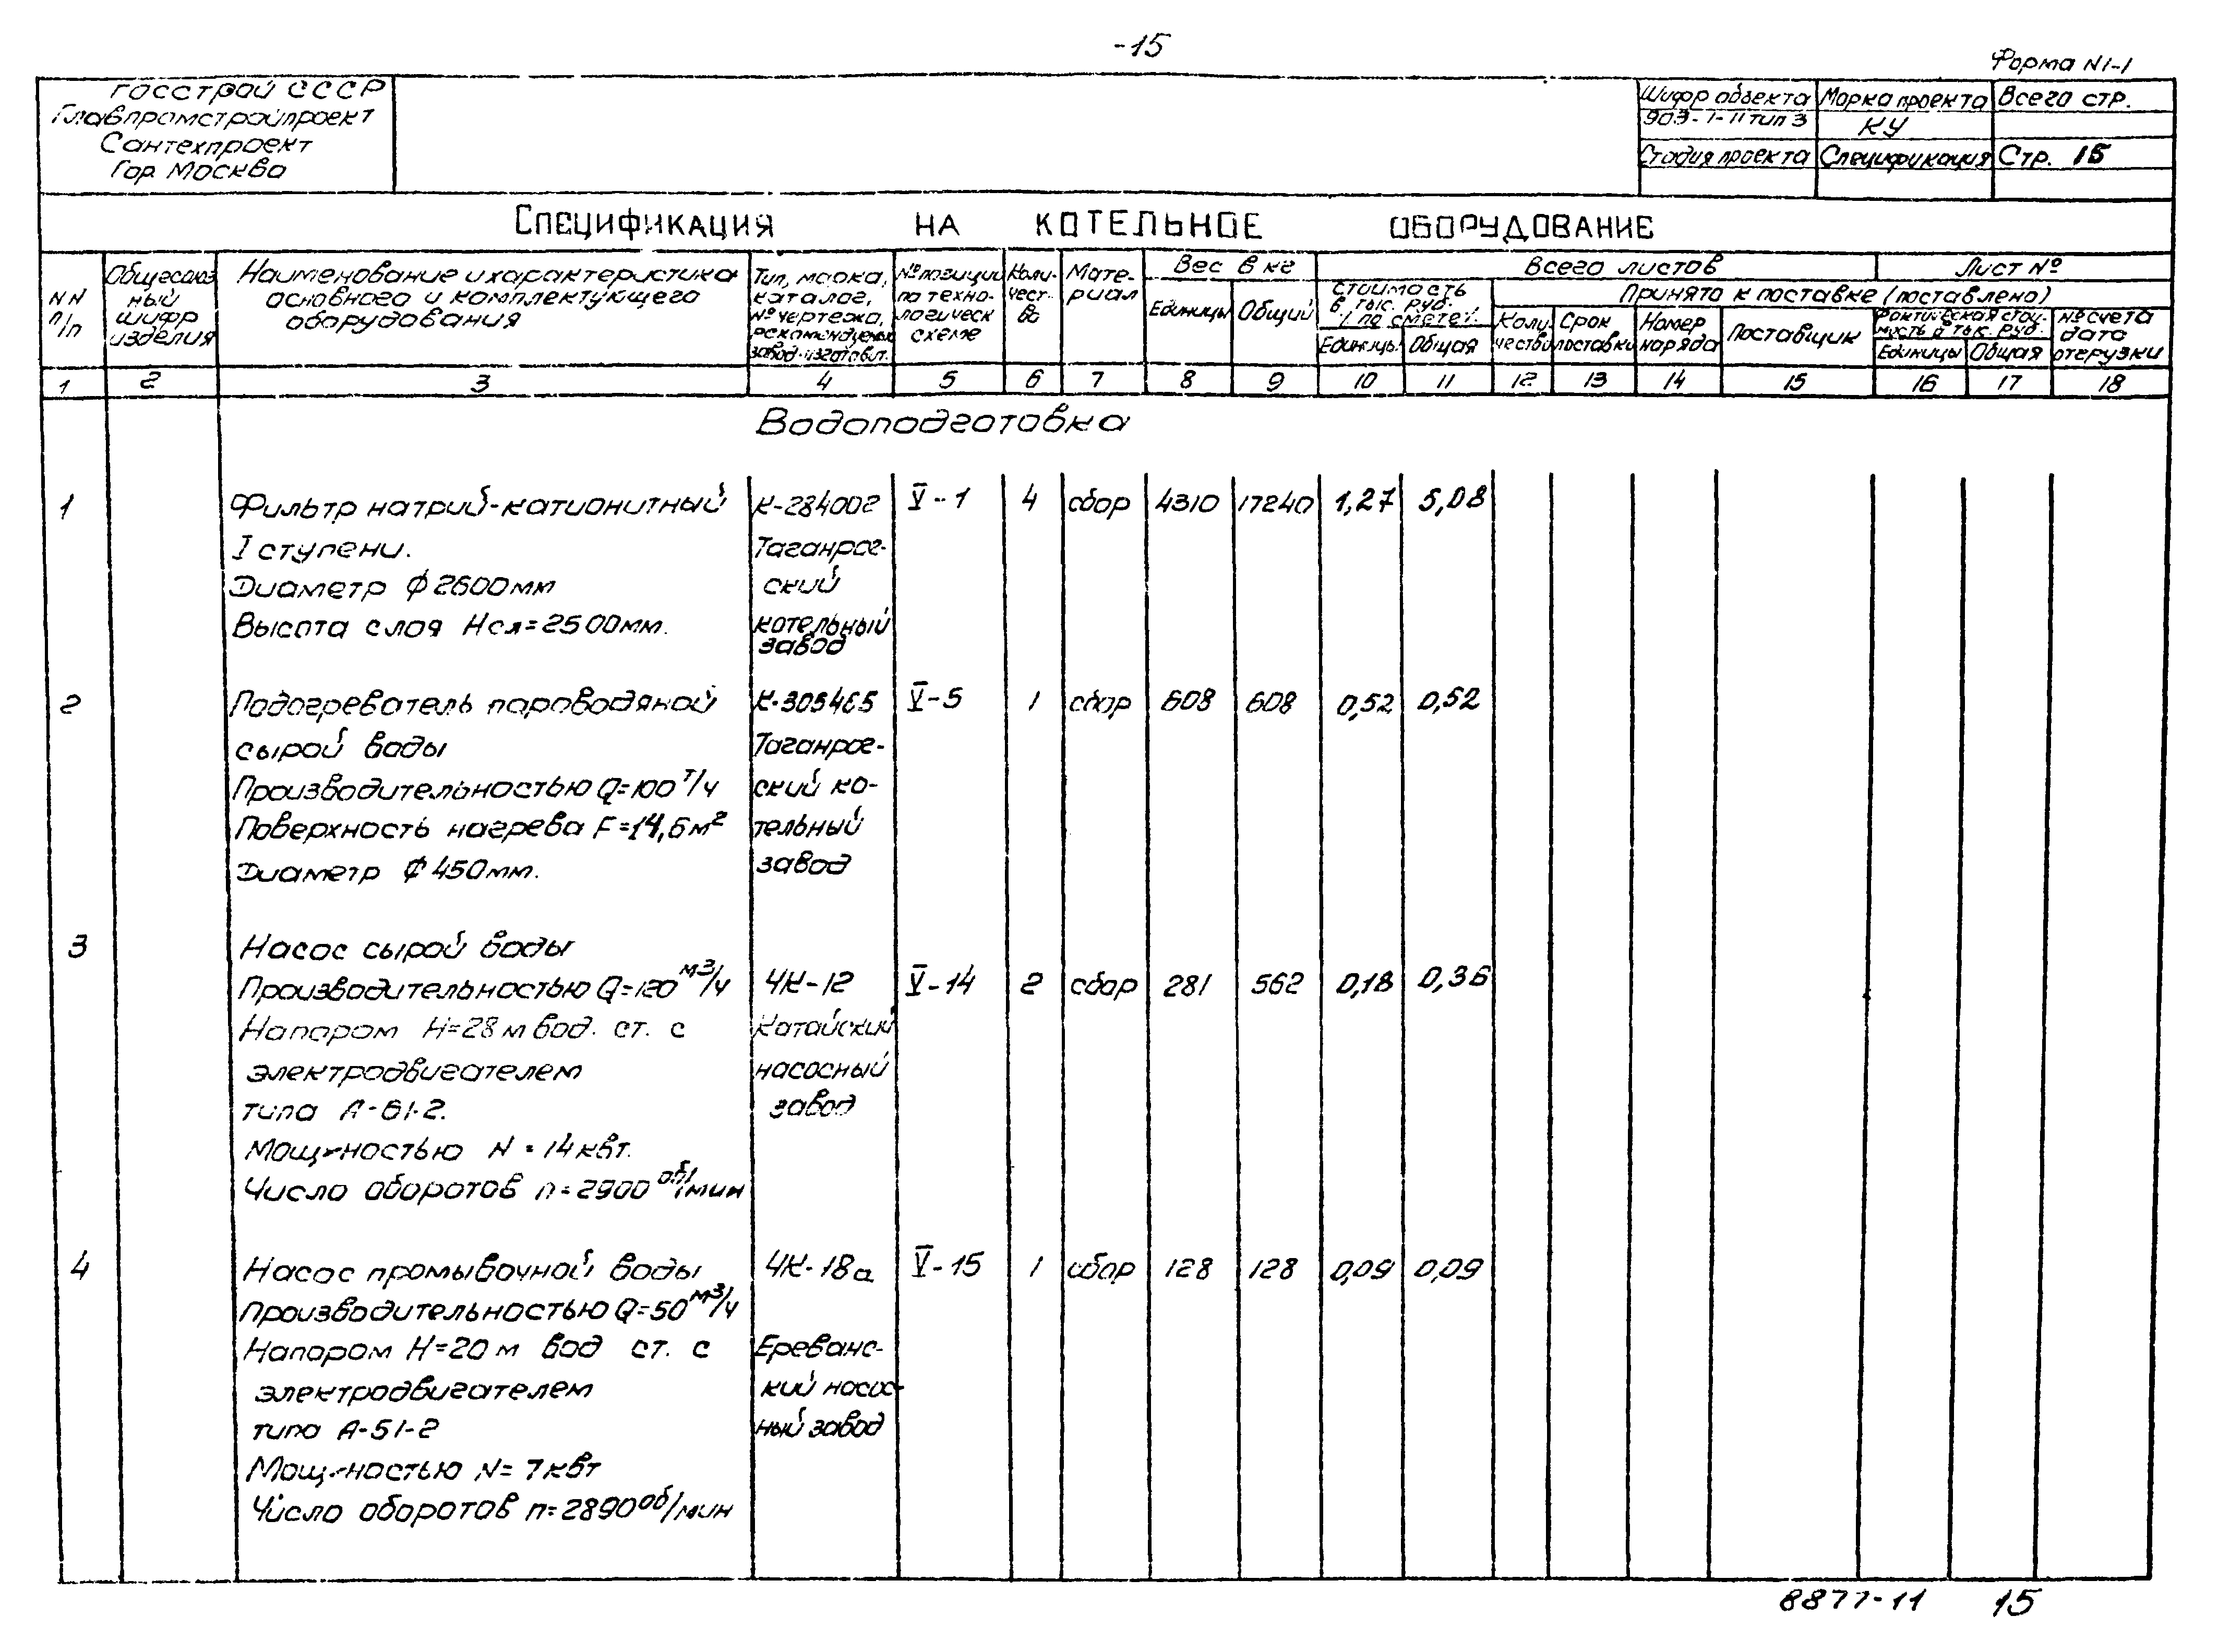 -15
Форма N1-1
Госстрой СССР
Главпромстройпроект
Сантехпроект
Гор. Москва
Шифр объекта Марка проекта Всего стр.
903-1-11 тип 3 КУ
Стадия проекта Спецификация Стр. 15
Спецификация на котельное оборудование
NN п/п
Общесоюзный шифр изделия
Наименование и характеристика основного и комплектующего оборудования
Тип, марка, каталог, № чертежа, рекомендуемый завод-изготовит.
№ позиции по технологическ схеме
Количество
Материал
Вес в кг
Единицы Общий
Всего листов Лист №
Стоимость в тыс. руб. по смете
Единицы Общая
Принято к поставке (поставлено)
Количество
Срок поставки
Номер наряда
Поставщик
Фактическая стоимость в тыс. руб.
Единицы Общая
№ счета дата отгрузки
1 2 3 4 5 6 7 8 9 10 11 12 13 14 15 16 17 18
Водоподготовка
1 Фильтр натрий-катионитный К-284002 V-1 4 сбор 4310 17240 1,27 5,08
I ступени. Таганрог-
Диаметр ϕ 2600мм ский
Высота слоя Hсл=2500мм. котельный
завод
2 Подогреватель пароводяной К-305465 V-5 1 сбор 608 608 0,52 0,52
сырой воды Таганрог-
Производительностью Q=100 т/ч ский ко-
Поверхность нагрева F=14,6м² тельный
Диаметр ϕ 450мм. завод
3 Насос сырой воды
Производительностью Q=120 м3/ч 4К-12 V-14 2 сбор 281 562 0,18 0,36
Напором H=28м вод. ст. с Катайский
электродвигателем насосный
типа А-61-2. завод
Мощностью N=14квт.
Число оборотов n=2900 об/мин
4 Насос промывочной воды 4К-18а V-15 1 сбор 128 128 0,09 0,09
Производительностью Q=50 м3/ч
Напором H=20м вод ст. с Ереванс-
электродвигателем кий насос-
типа А-51-2 ный завод
Мощностью N=7квт
Число оборотов n=2890 об/мин
8877-11 15